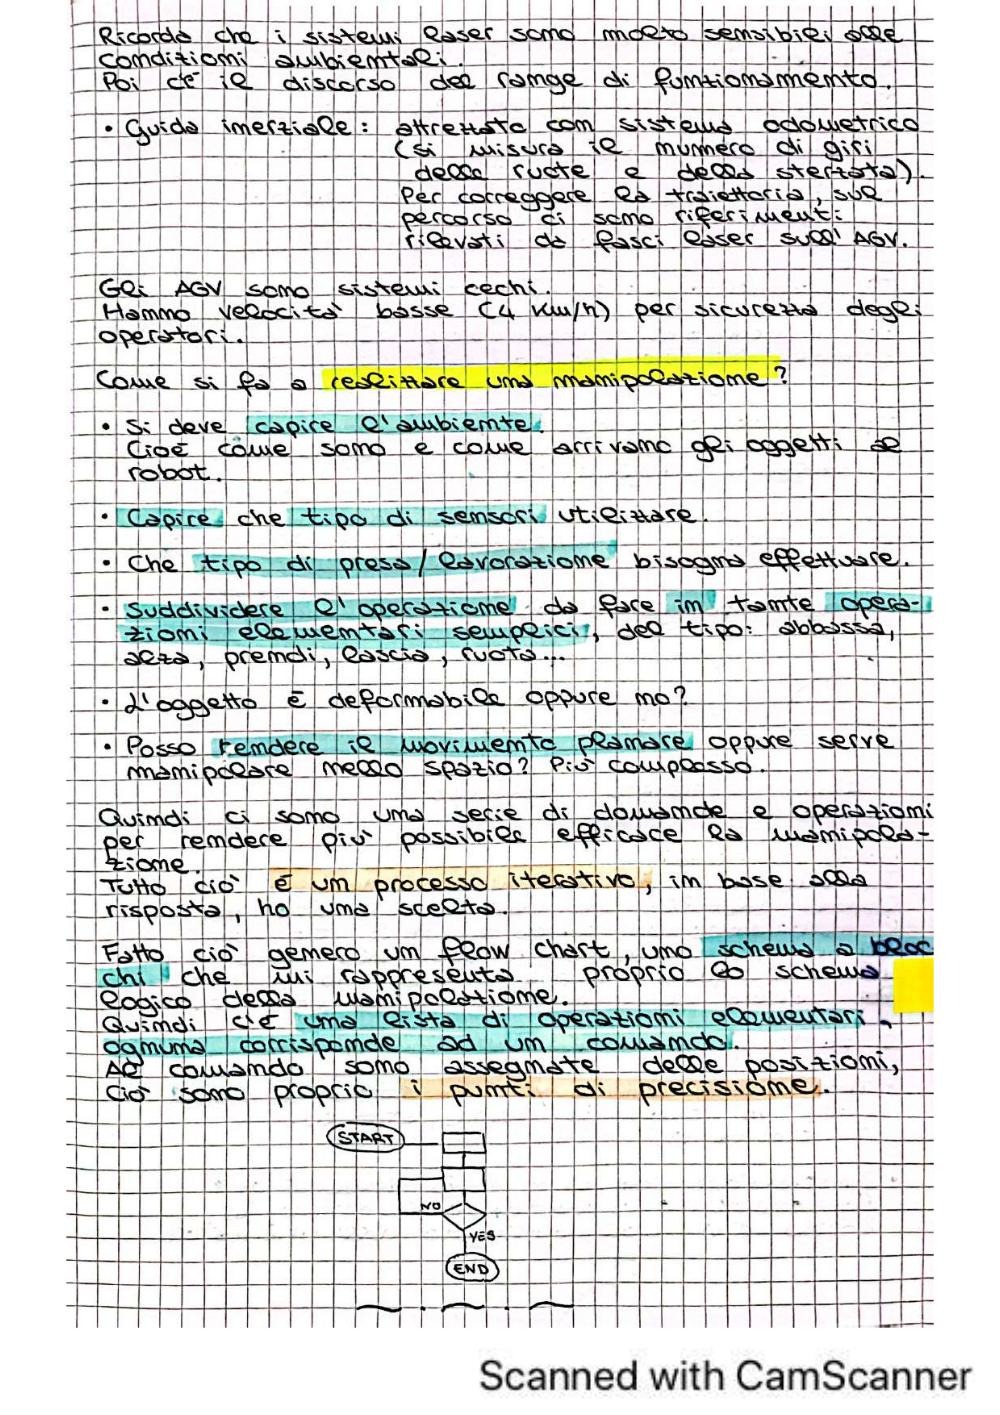 Ricorda che i sistemi laser sono molto sensibili alle
condizioni ambientali.
Poi c'è il discorso del range di funzionamento.
• Guida inerziale: attrezzato con sistema odometrico
(si misura il numero di giri
delle ruote e della sterzata).
Per correggere la traiettoria, sul
percorso ci sono riferimenti
rilevati da fasci laser sull'AGV.
Gli AGV sono sistemi cechi.
Hanno velocità basse (4 km/h) per sicurezza degli
operatori.
Come si fa a realizzare una manipolazione?
• Si deve capire l'ambiente.
Cioè come sono e come arrivano gli oggetti al
robot.
• Capire che tipo di sensori utilizzare.
• Che tipo di presa/lavorazione bisogna effettuare.
• Suddividere l'operazione da fare in tante opera-
zioni elementari semplici, del tipo: abbassa,
alza, prendi, lascia, ruota...
• L'oggetto è deformabile oppure no?
• Posso rendere il movimento planare oppure serve
manipolare nello spazio? Più complesso.
Quindi ci sono una serie di domande e operazioni
per rendere più possibile efficace la manipola-
zione.
Tutto ciò è un processo iterativo, in base alla
risposta, ho una scelta.
Fatto ciò genero un flow chart, uno schema a bloc
chi che mi rappresenta proprio lo schema
logico della manipolazione.
Quindi c'è una lista di operazioni elementari,
ognuna corrisponde ad un comando.
Al comando sono assegnate delle posizioni,
ciò sono proprio i punti di precisione.
START
NO
YES
END
Scanned with CamScanner